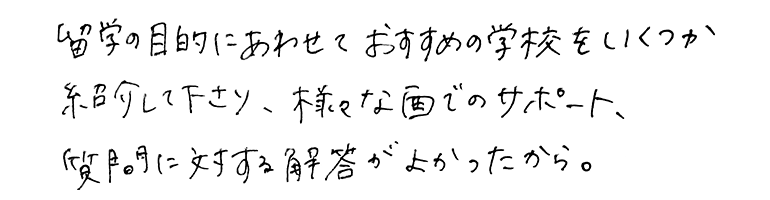 留学の目的にあわせておすすめの学校をいくつか
紹介して下さり、様々な面でのサポート、
質問に対する解答がよかったから。